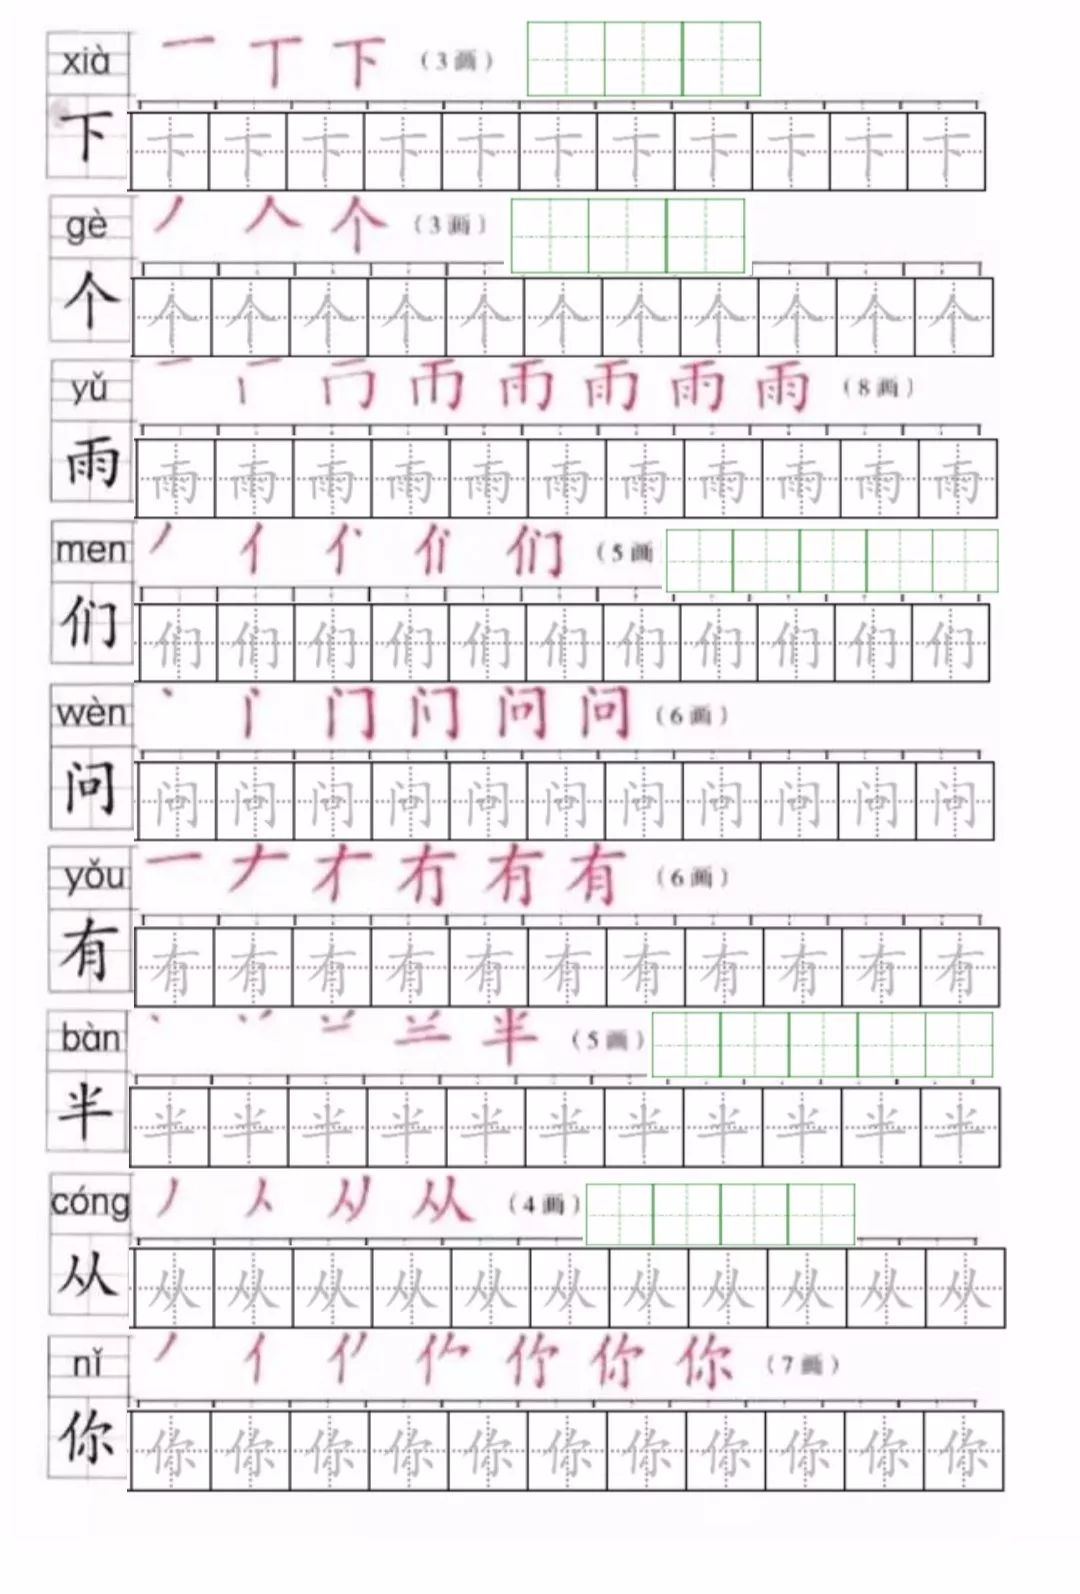 xià 一 丅 下 （3画）
下 下 下 下 下 下 下 下 下 下 下 下
gè 丿 人 个 （3画）
个 个 个 个 个 个 个 个 个 个 个 个
yǔ 一 雨 雨 （8画）
雨 雨 雨 雨 雨 雨 雨 雨 雨 雨 雨 雨
men 丿 亻 们 （5画
们 们 们 们 们 们 们 们 们 们 们 们
wèn 丶 门 问 （6画）
问 问 问 问 问 问 问 问 问 问 问 问
yǒu 一 𠂇 有 （6画）
有 有 有 有 有 有 有 有 有 有 有 有
bàn 丶 丷 䒑 兰 半 （5画）
半 半 半 半 半 半 半 半 半 半 半 半
cóng 丿 人 从 （4画）
从 从 从 从 从 从 从 从 从 从 从 从
nǐ 丿 亻 你 （7画）
你 你 你 你 你 你 你 你 你 你 你 你